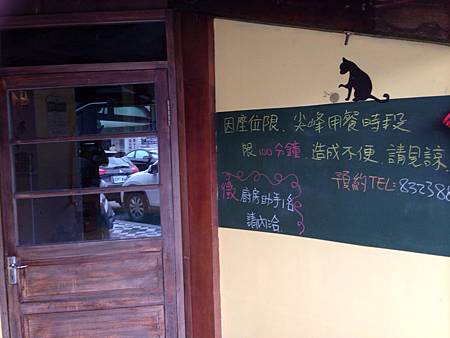 因座位限、尖峰用餐時段
限100分鐘 造成不便 請見諒
預約TEL:832388
徵 廚房助手1名
請內洽